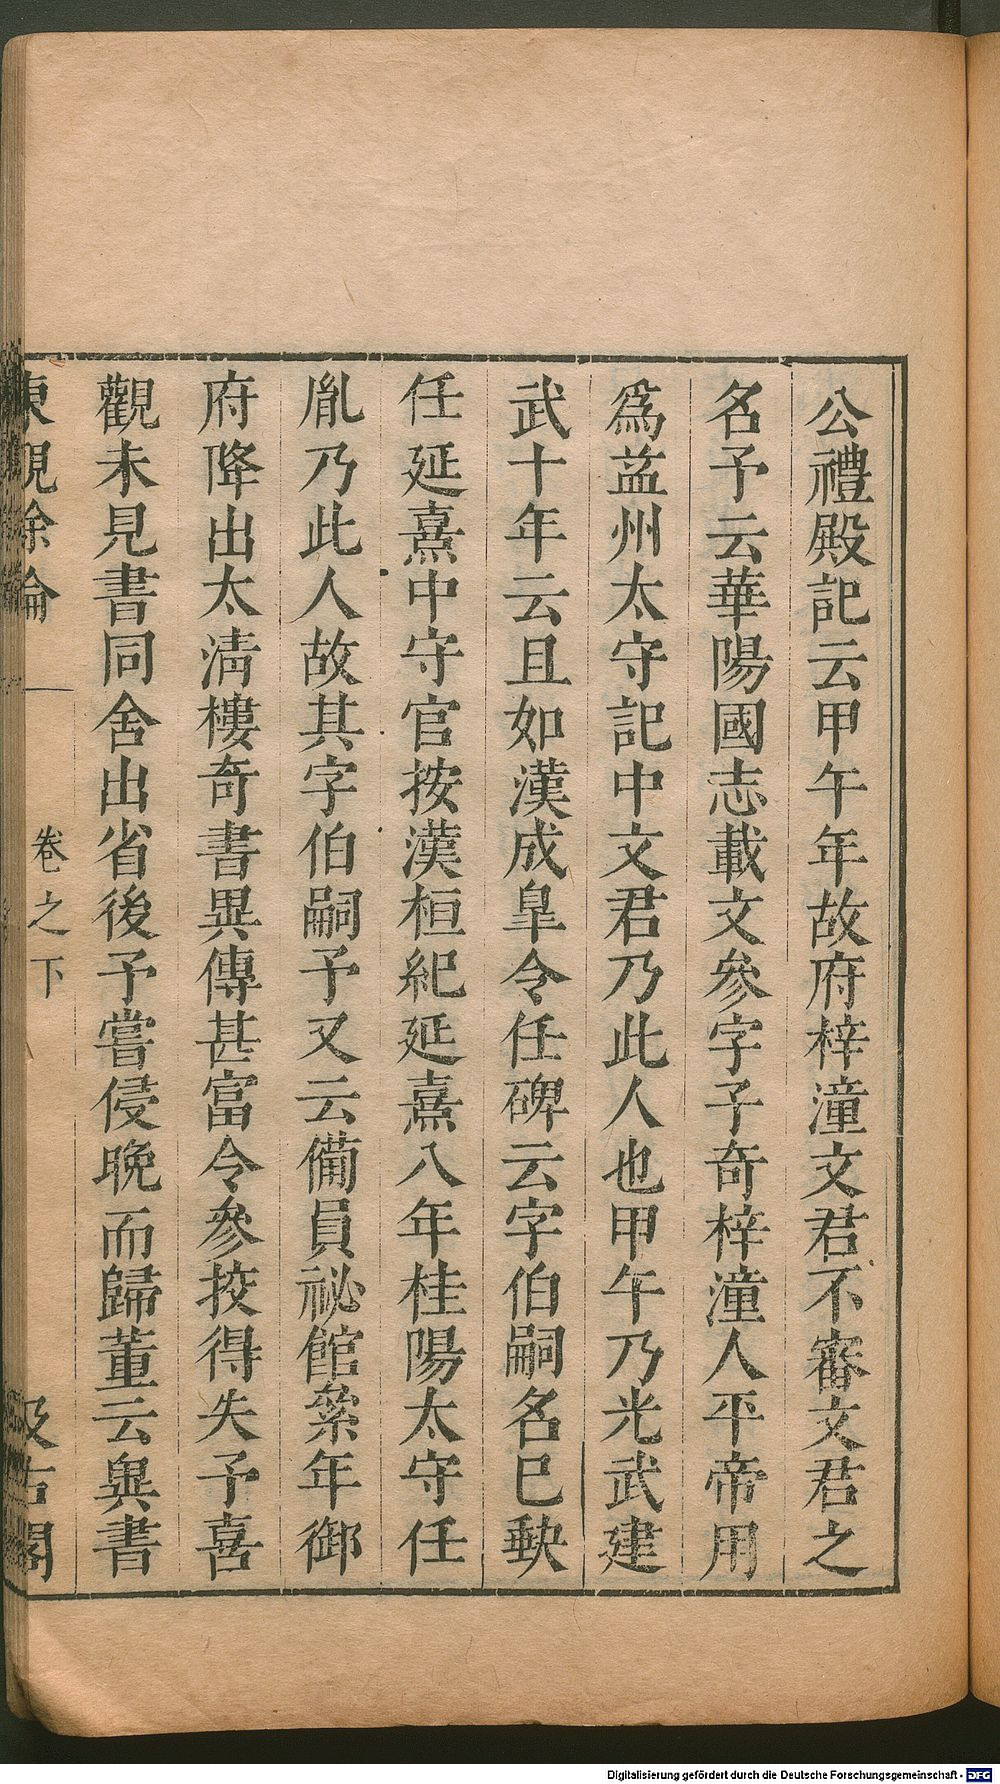 公禮殿記云甲午年故府梓潼文君不審文君之
名予云華陽國志載文參字子奇梓潼人平帝用
爲益州太守記中文君乃此人也甲午乃光武建
武十年云且如漢成臯令任碑云字伯嗣名巳缺
任延熹中守官按漢桓紀延熹八年桂陽太守任
胤乃此人故其字伯嗣予又云備員祕館絫年御
府降出太淸樓奇書異傳甚富令參挍得失予喜
觀未見書同舍出省後予嘗侵晚而歸董云與書
東觀餘論
卷之下
汲古閣
Digitalisierung gefördert durch die Deutsche Forschungsgemeinschaft - DFG